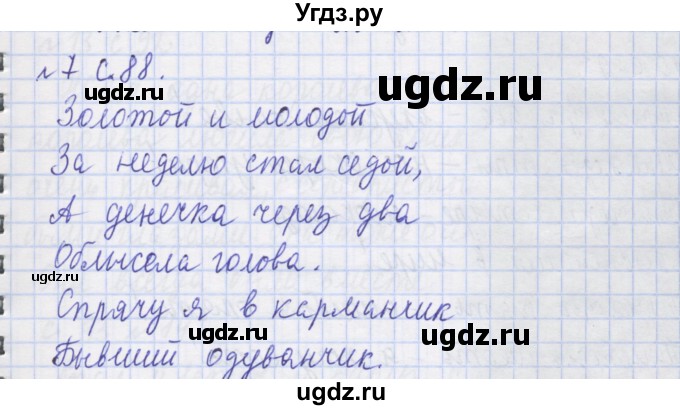 Угдз.ру
№7 с.88.
ugdz.ru
ugdz.ru
Золотой и молодой
За неделю стал седой,
ugdz.ru
А денечка через два
Облысела голова.
ugdz.ru
Спрячу я в карманчик
ugdz.ru
ugdz.ru
Бывший одуванчик.
ugdz.ru